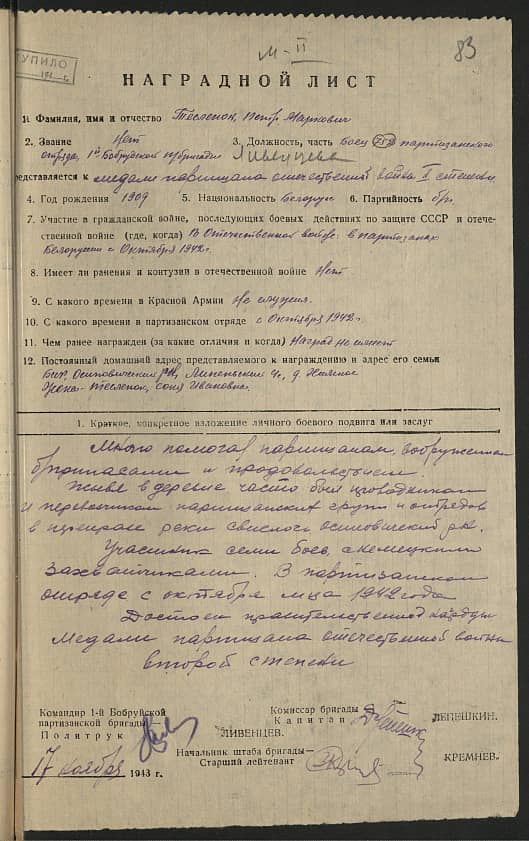 М-II
83
НАГРАДНОЙ ЛИСТ
1. Фамилия, имя и отчество Тесленок, Петр Маркович
2. Звание Нет 3. Должность, часть Боец 752 партизанского
отряда, 1й Бобруйской п/бригады Ливенцева
представляется к медали партизана отечественной войны II степени
4. Год рождения 1909 5. Национальность Белорус 6. Партийность б/п.
7. Участие в гражданской войне, последующих боевых действиях по защите СССР и отече-
ственной войне (где, когда) В Отечественной войне: в партизанах
Белоруссии с Октября 1942г.
8. Имеет ли ранения и контузии в отечественной войне Нет
9. С какого времени в Красной Армии Не служил.
10. С какого времени в партизанском отряде с Октября 1942г.
11. Чем ранее награжден (за какие отличия и когда) Наград не имеет
12. Постоянный домашний адрес представляемого к награждению и адрес его семьи
Осиповичский д.
Жена- Тесленок, Ивановна.
1. Краткое, конкретное изложение личного боевого подвига или заслуг
Много помогал партизанам, вооружением
боеприпасами и продовольствием.
Живя в деревне часто был проводником
и перевозчиком партизанских групп и отрядов
в реки Свислочь Осиповичский
Участник семи боев, с немецкими
захватчиками. В партизанском
отряде с октября м-ца 1942 года
Достоин правительственной награды
Медали партизана отечественной войны
второй степени
Командир 1-й Бобруйской
партизанской бригады—
Политрук ЛИВЕНЦЕВ.
Комиссар бригады
Капитан ЛЕПЕШКИН.
Начальник штаба бригады—
Старший лейтенант КРЕМНЕВ.
17 ноября 1943 г.